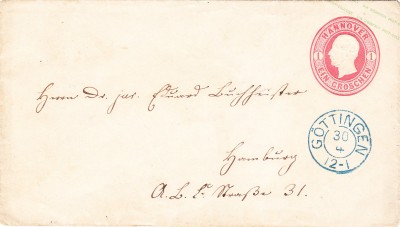 HANNOVER
1 1
EIN GROSCHEN
Herrn Dr. jur. Eduard Buchheister
GÖTTINGEN
30
4
12-1
Hamburg
A.B.C. Straße 31.